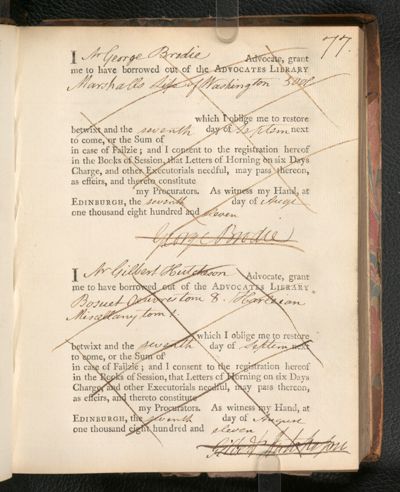 77.
I Mr George Brodie Advocate, grant
me to have borrowed out of the ADVOCATES LIBRARY
Marshalls Life of Washington 5 vol
which I oblige me to restore
betwixt and the seventh day of Septem next
to come, or the Sum of
in case of Failzie; and I consent to the registration hereof
in the Books of Session, that Letters of Horning on six Days
Charge, and other Executorials needful, may pass thereon,
as effeirs, and thereto constitute
my Procurators. As witness my Hand, at
EDINBURGH, the seventh day of Augt
one thousand eight hundred and eleven
George Brodie
I Mr Gilbert Hutchison Advocate, grant
me to have borrowed out of the ADVOCATES LIBRARY
Bosuet Oeuvres tom 8. Harleian
Miscellany tom 1.
which I oblige me to restore
betwixt and the seventh day of Septem next
to come, or the Sum of
in case of Failzie; and I consent to the registration hereof
in the Books of Session, that Letters of Horning on six Days
Charge, and other Executorials needful, may pass thereon,
as effeirs, and thereto constitute
my Procurators. As witness my Hand, at
EDINBURGH, the seventh day of August
one thousand eight hundred and eleven
Gilbt Hutchison